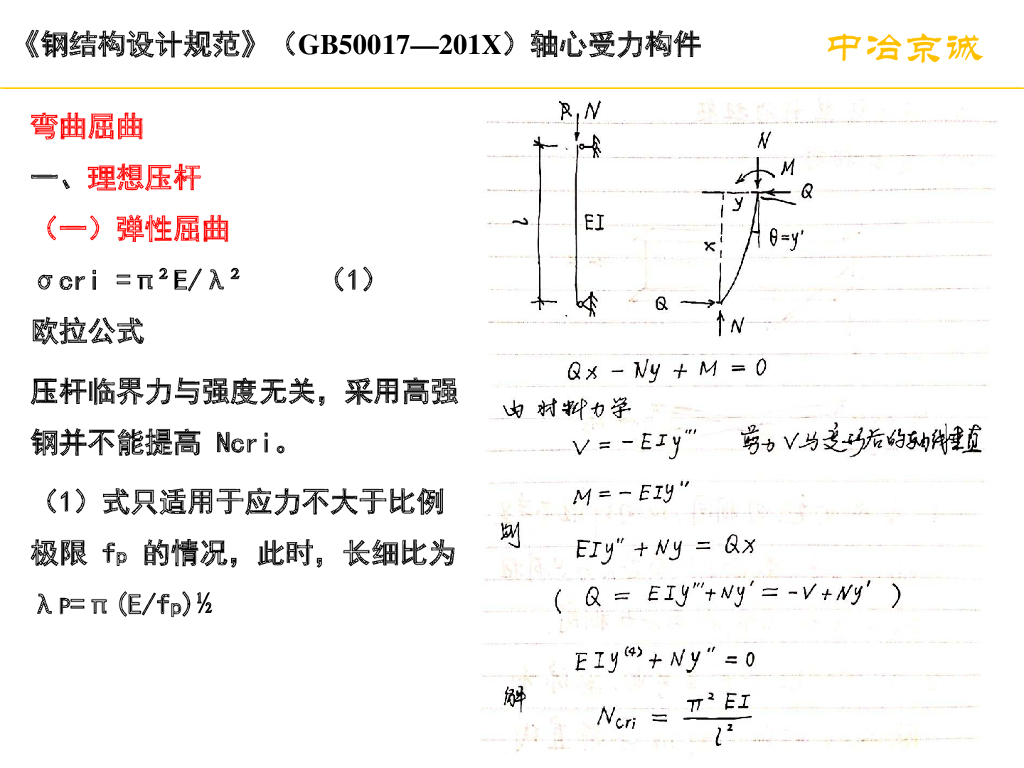 《钢结构设计规范》（GB50017—201X）轴心受力构件
中冶京诚
弯曲屈曲
一、理想压杆
（一）弹性屈曲
σcri =π²E/λ² （1）
欧拉公式
压杆临界力与强度无关，采用高强
钢并不能提高 Ncri。
（1）式只适用于应力不大于比例
极限 fp 的情况，此时，长细比为
λP=π(E/fp)½
N
l
EI
N
M
Q
y
x
θ=y'
Q
N
Qx - Ny + M = 0
由材料力学
V = -EIy''' 剪力V与变形后的轴线垂直
M = -EIy''
则
EIy'' + Ny = Qx
( Q = EIy'''+Ny' = -V+Ny' )
EIy⁽⁴⁾ + Ny'' = 0
解
Ncri = π² EI / l²